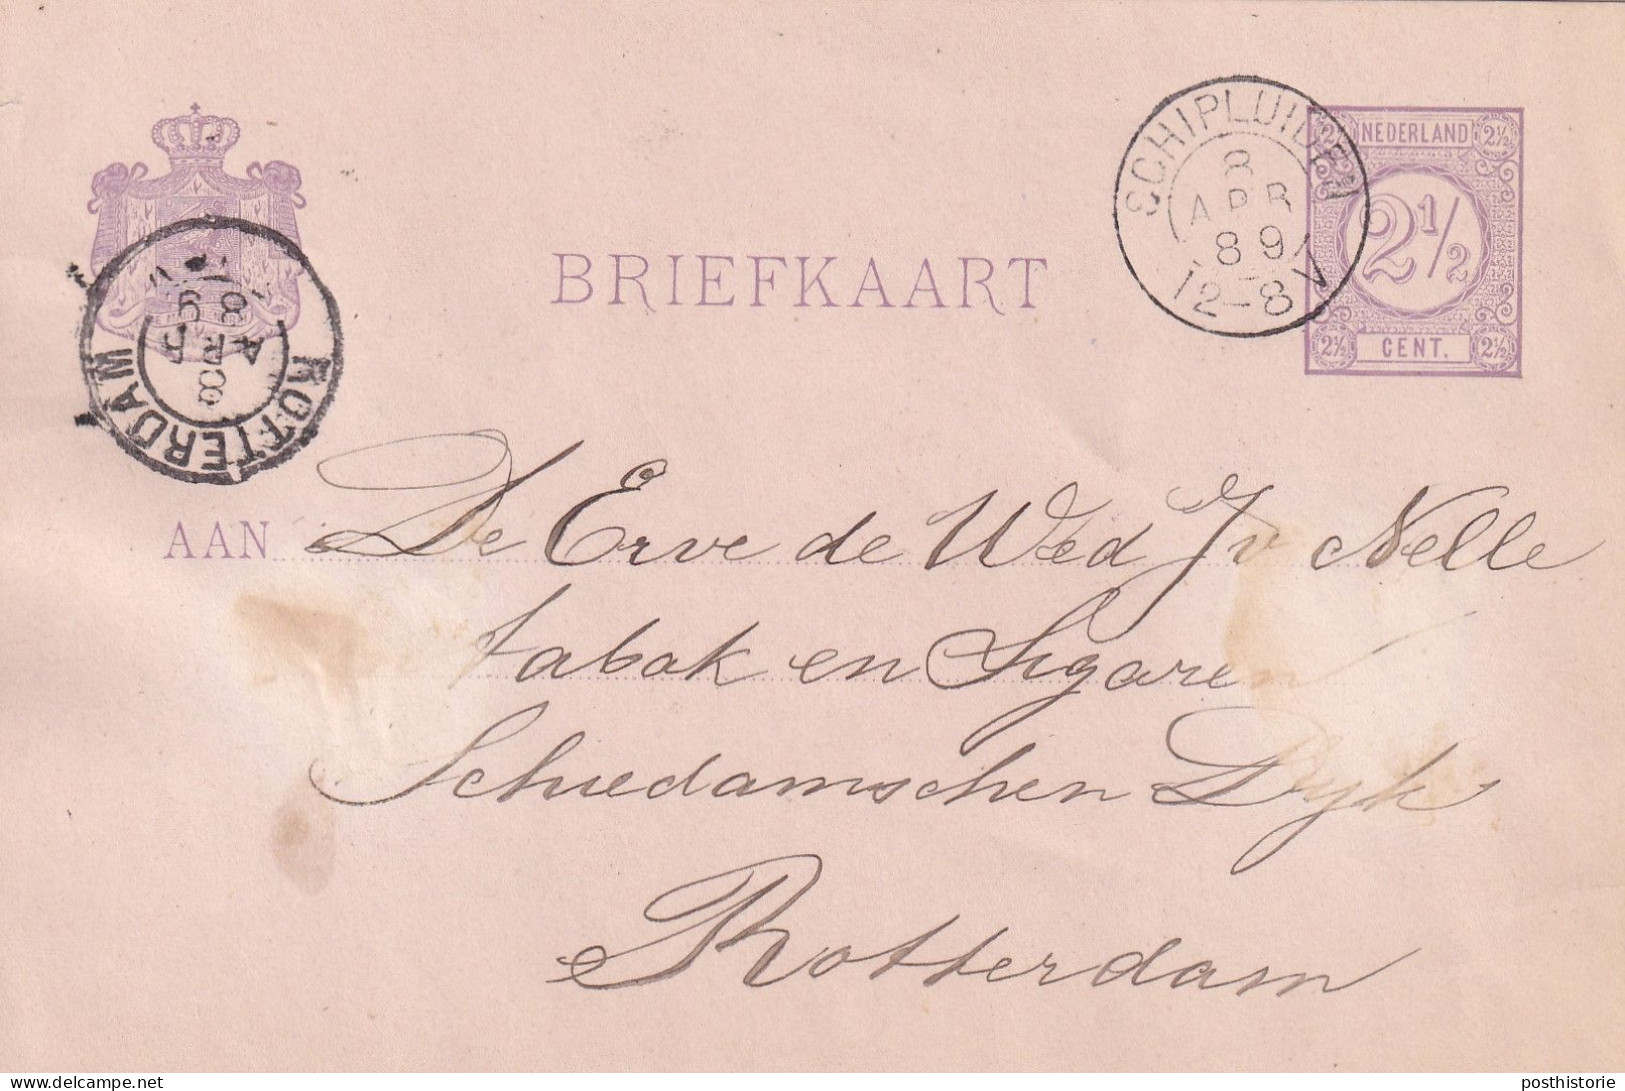 SCHIPLUIDEN
8
APR
89
12-8V
NEDERLAND
2½ 2½
2½
2½ 2½
CENT.
BRIEFKAART
ROTTERDAM
8
APR
89
AAN De Erve de Wed J v Nelle
tabak en Sigaren
Schiedamschen Dyk
Rotterdam
www.delcampe.net
posthistorie